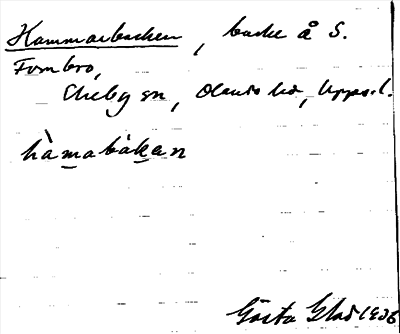 Hammarbacken, backe å S.
Fombro,
Ekeby sn, Olands hd, Upps.l.
hàmabàkan
Gösta Glad 1936